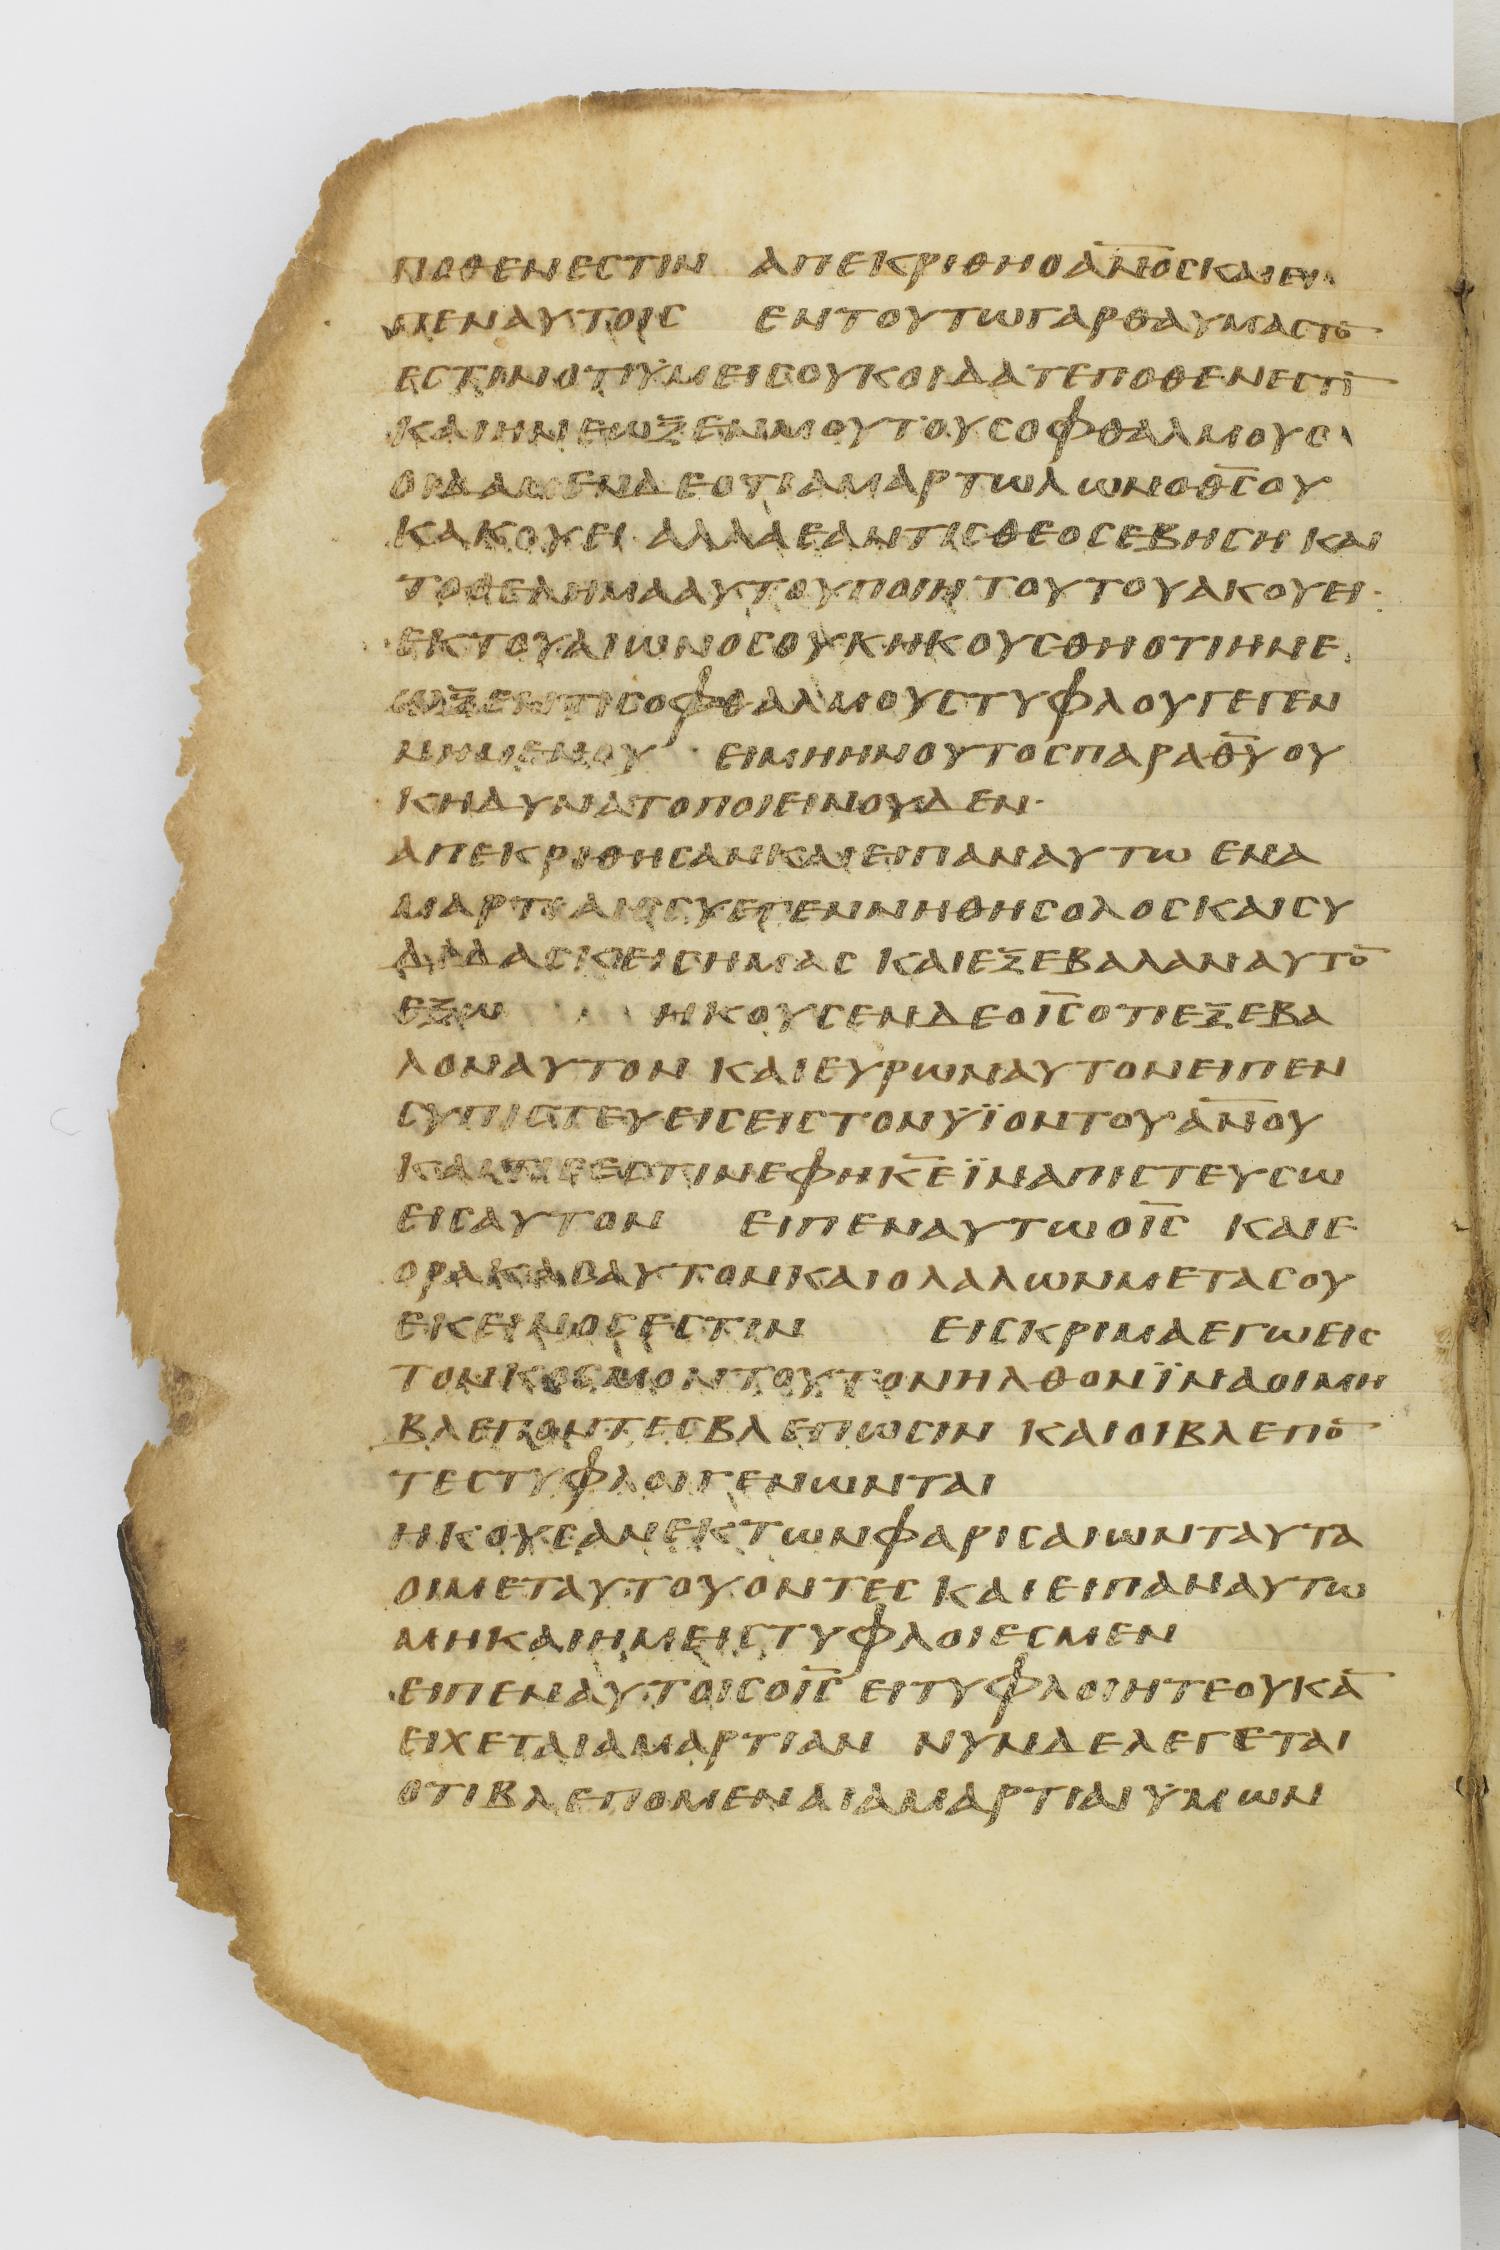 ποθενεστιν απεκριθηοα̅ν̅ο̅σ̅καιει
πεναυτοισ εντουτωγαρθαυμαστο̅
εστινοτιϋμεισουκοιδατεποθενεστι̅
καιηνεωξενμουτουσοφθαλμουσ
οιδαμενδεοτιαμαρτωλωνοθ̅σ̅ου
κακουει αλλαεαντισθεοσεβησηκαι
τοθεληмααυτουποιητουτουακουει·
εκτουαιωνοσουκηκουσθηοτιηνε
ωξεντισοφθαλμουστυφλουγεγεν
νημενου· ειμηηνουτοσπαραθ̅υ̅ου
κηδυνατοποιεινουδεν·
απεκριθησανκαιειπαναυτω ενα
μαρτιαισυεγεννηθησολοσκαισυ
διδασκεισημασ καιεξεβαλαναυτο̅
εξω ηκουσενδεοι̅σ̅οτιεξεβα
λοναυτον καιευρωναυτονειπεν
συπιστευεισειστονϋϊοντουα̅ν̅ο̅υ̅
καιτισεστινεφηκ̅ε̅ϊναπιστευσω
εισαυτον ειπεναυτωοι̅σ̅ καιε
ορακασαυτονκαιολαλωνμετασου
εκεινοσεστιν εισκριμαεγωεισ
τονκοσμοντουτονηλθονϊναοιμη
βλεποντεσβλεπωσιν καιοιβλεπο̅
τεστυφλοιγενωνται
ηκουσανεκτωνφαρισαιωνταυτα
οιμεταυτουοντεσ καιειπαναυτω
μηκαιημειστυφλοιεσμεν
ειπεναυτοισοι̅σ̅ ειτυφλοιητεουκα̅
ειχεταιαμαρτιαν νυνδελεγεται
οτιβλεπομεναιαμαρτιαιϋμων